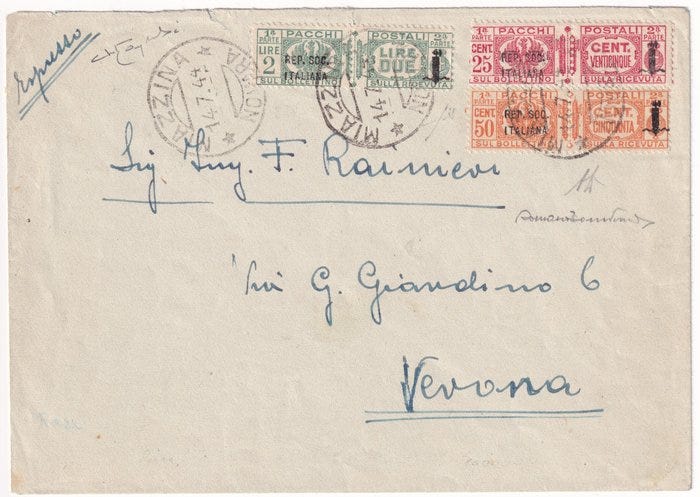 Espresso
1ª PARTE PACCHI POSTALI 2ª PARTE
LIRE 2 REP. SOC. ITALIANA LIRE DUE
SUL BOLLETTINO SULLA RICEVUTA
1ª PARTE PACCHI POSTALI 2ª PARTE
CENT. 25 REP. SOC. ITALIANA CENT. VENTICINQUE
SUL BOLLETTINO SULLA RICEVUTA
1ª PARTE PACCHI POSTALI 2ª PARTE
CENT. 50 REP. SOC. ITALIANA CENT. CINQUANTA
SUL BOLLETTINO SULLA RICEVUTA
MIAZZINA
14.7.44
Sig Ing. F. Rainieri
Via G. Giardino 6
Verona